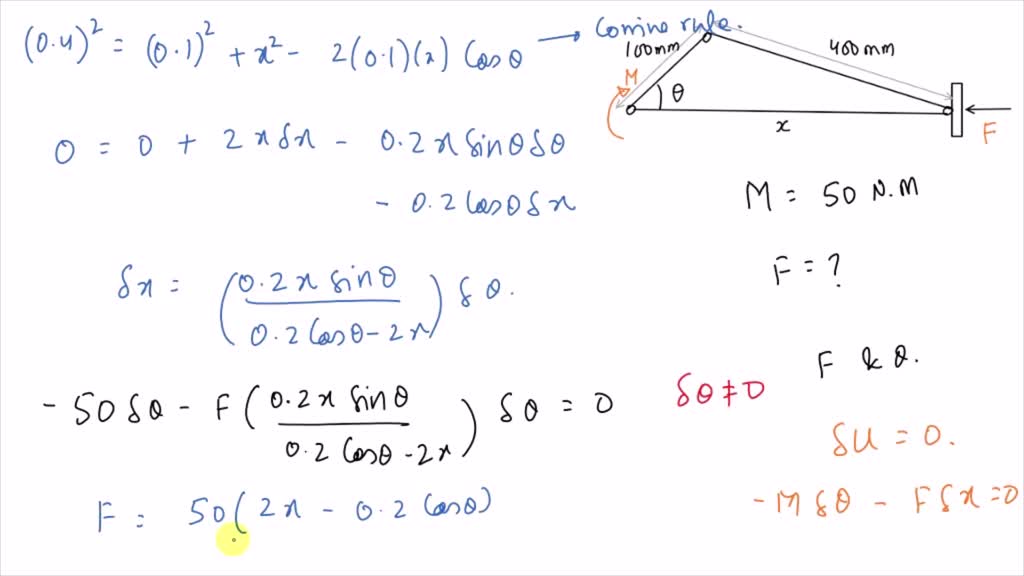 (0.4)² = (0.1)² + x² - 2(0.1)(x) Cosθ → Comine rule.
100mm
400mm
M
θ
x
F
0 = 0 + 2xδx - 0.2x sinθδθ
- 0.2 Cosθ δx
M = 50 N.M
F = ?
δx = (0.2x sinθ / 0.2 Cosθ - 2x) δθ.
F & θ.
- 50 δθ - F (0.2x sinθ / 0.2 Cosθ - 2x) δθ = 0
δθ ≠ 0
δU = 0.
- M δθ - F δx = 0
F = 50(2x - 0.2 Cosθ)